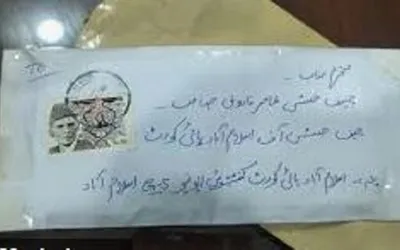 To
محترم جناب
چیف جسٹس عامر فاروق صاحب
چیف جسٹس آف اسلام آباد ہائی کورٹ
اسلام آباد ہائی کورٹ اسلام آباد